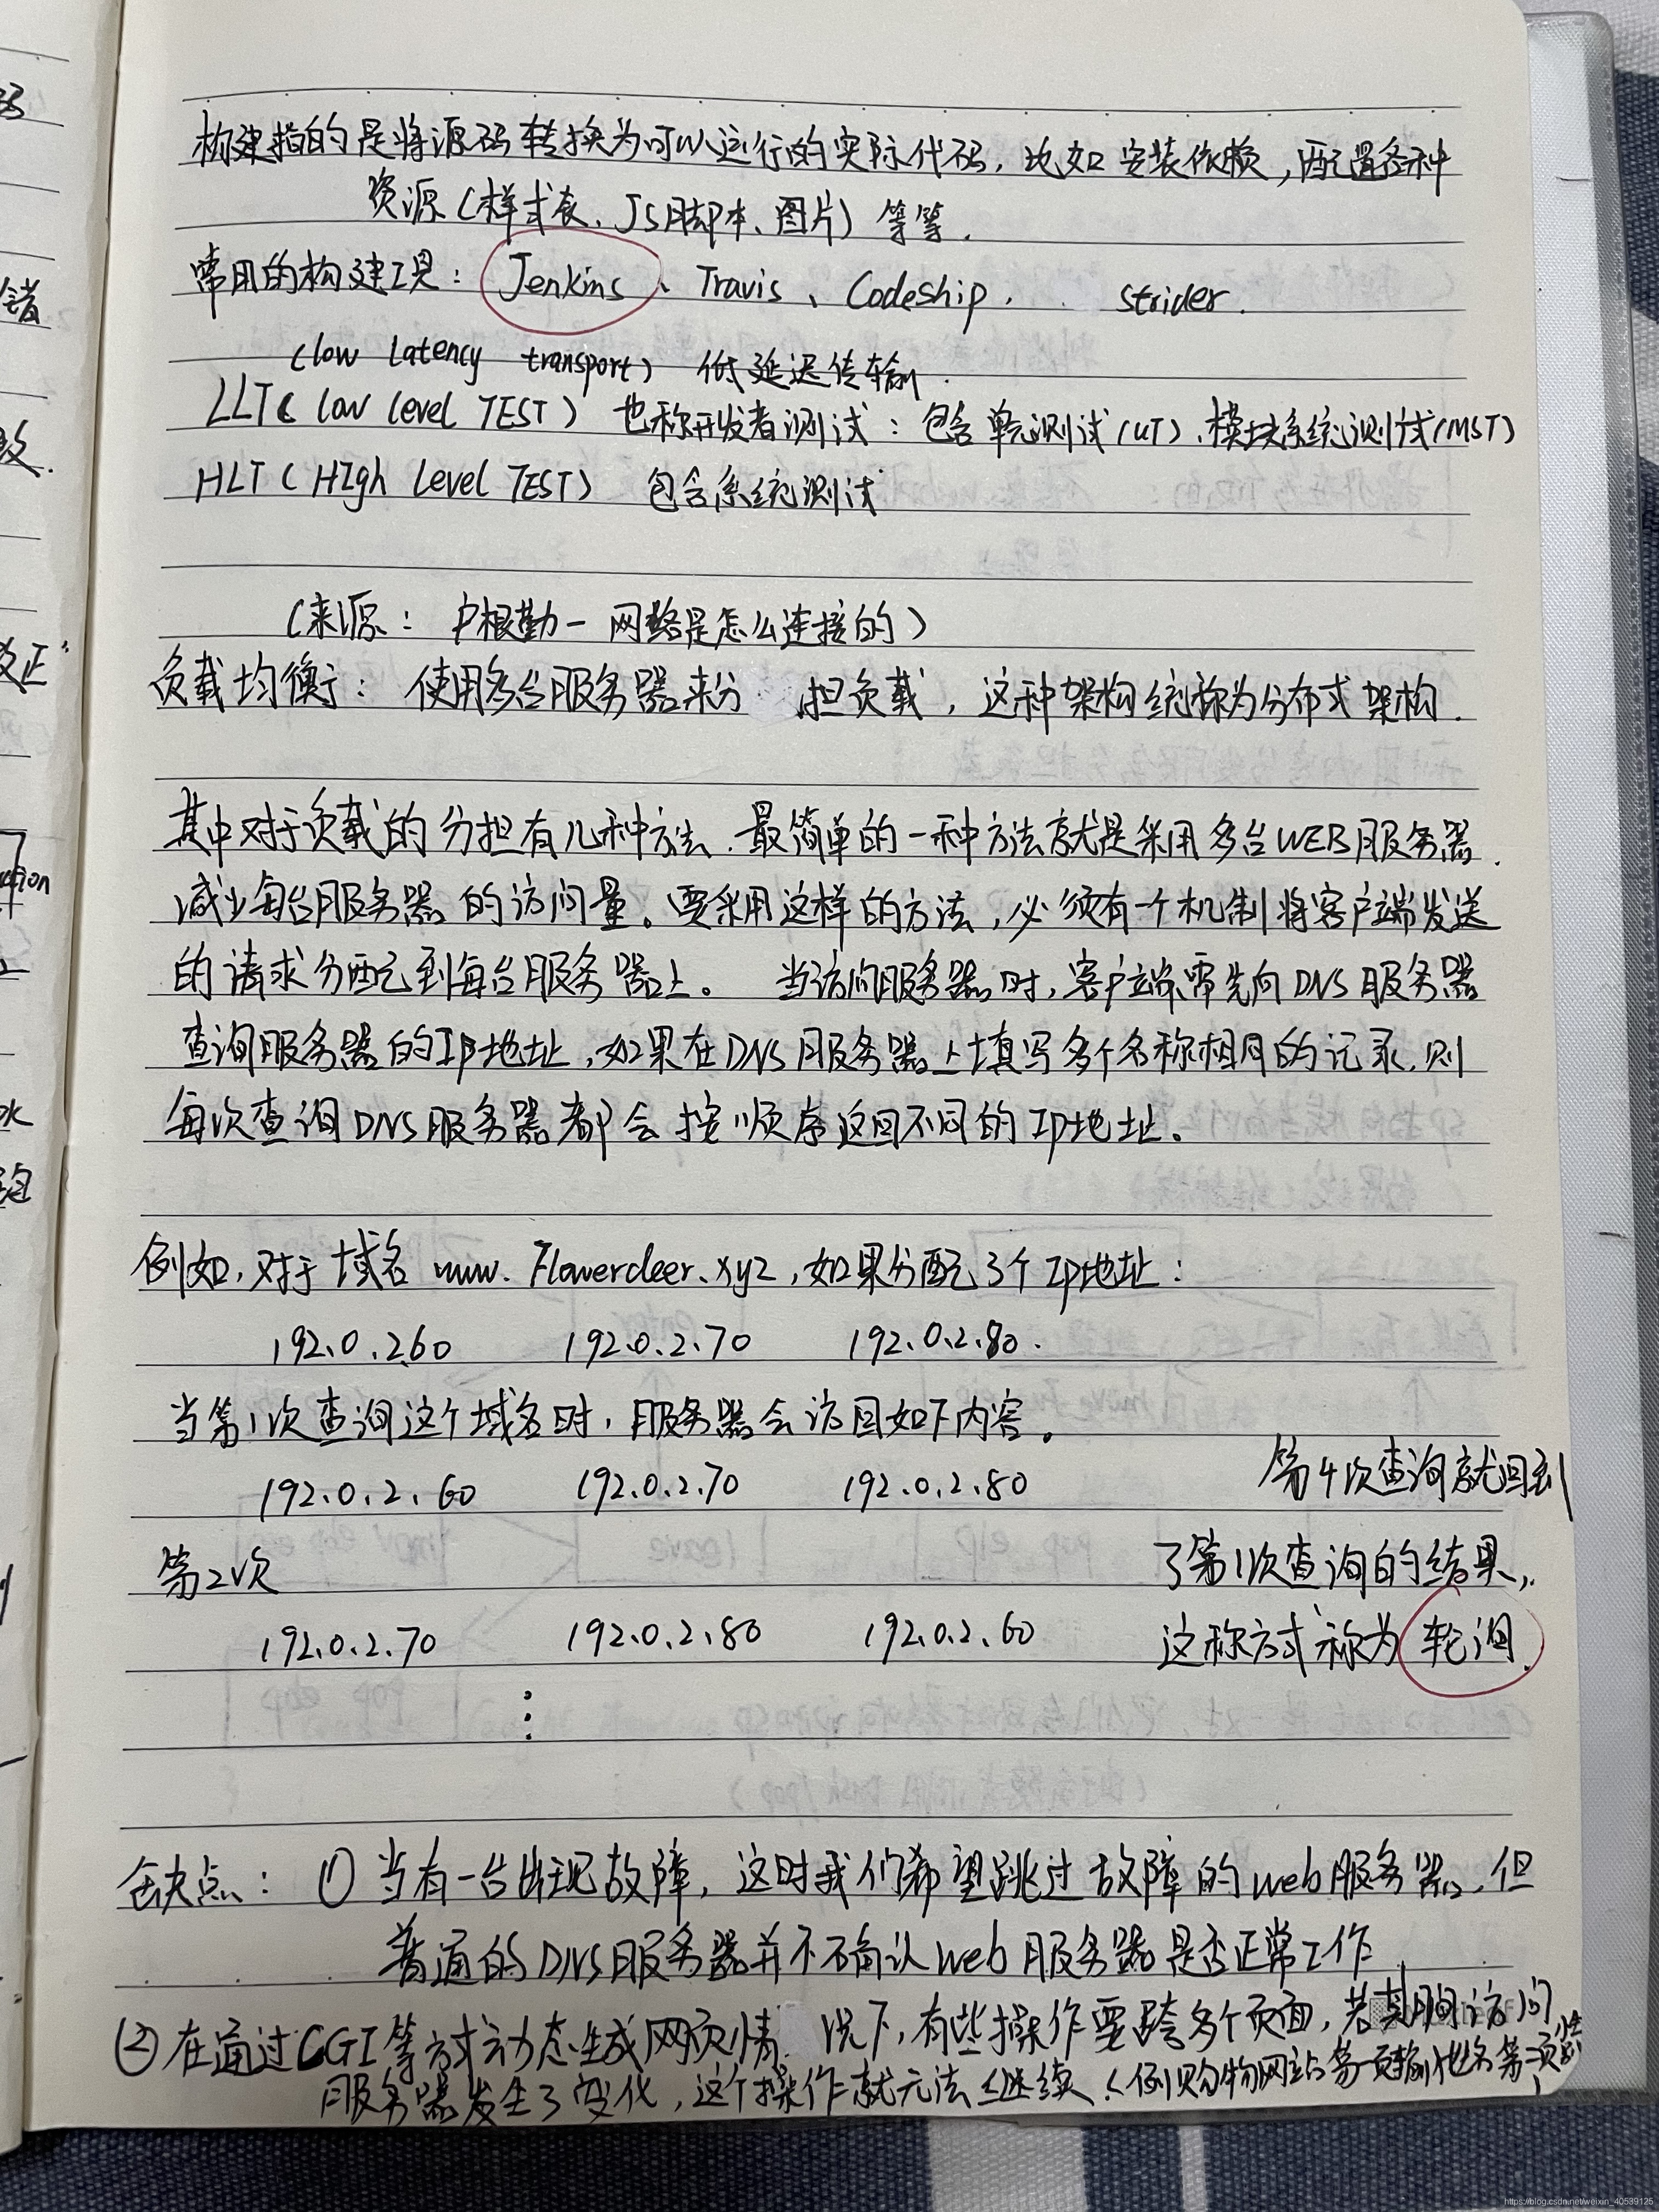 构建指的是将源码转换为可以运行的实际代码，比如安装依赖，配置各种
资源（样式表、JS脚本、图片）等等.
常用的构建工具： Jenkins、Travis、Codeship. strider.
(low latency transport) 低延迟传输.
LLT( low level TEST) 也称开发者测试：包含单元测试(UT)、模块系统测试(MST)
HLT ( HIgh Level TEST) 包含系统测试
（来源： 户根勤一 网络是怎么连接的）
负载均衡： 使用多台服务器来分 担负载，这种架构统称为分布式架构.
其中对于负载的分担有几种方法.最简单的一种方法就是采用多台WEB服务器.
减少每台服务器的访问量。要采用这样的方法，必须有一个机制将客户端发送
的请求分配到每台服务器上。 当访问服务器时，客户端需先向DNS服务器
查询服务器的IP地址，如果在DNS服务器上填写多个名称相同的记录.则
每次查询DNS服务器都会按顺序返回不同的IP地址。
例如，对于域名 www.Flowerdeer.xyz，如果分配3个IP地址：
192.0.2.60 192.0.2.70 192.0.2.80.
当第1次查询这个域名时，服务器会访回如下内容。
192.0.2.60 192.0.2.70 192.0.2.80
第4次查询就回到
第2次
了第1次查询的结果，
192.0.2.70 192.0.2.80 192.0.2.60
这称方式称为轮询.
缺点： ① 当有一台出现故障，这时我们希望跳过故障的web服务器，但
普通的DNS服务器并不确认web服务器是否正常工作.
② 在通过CGI等方式动态生成网页情 况下，有些操作要跨多个页面，若其期间访问
服务器发生了变化，这个操作就无法继续.（例购物网站第一页输地名第二页
https://blog.csdn.net/weixin_40539125